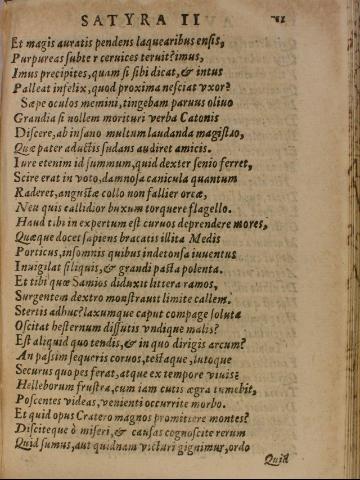 SATYRA II
Et magis auratis pendens laquearibus ensis,
Purpureas subter ceruices terruit? imus,
Imus precipites, quam si sibi dicat, & intus
Palleat infelix, quod proxima nesciat vxor?
Sæpe oculos memini, tingebam paruus oliuo
Grandia si nollem morituri verba Catonis
Discere, ab insano multum laudanda magistro,
Quæ pater adductis sudans audiret amicis.
Iure etenim id summum, quid dexter senio ferret,
Scire erat in voto, damnosa canicula quantum
Raderet, angustæ collo non fallier orcæ,
Neu quis callidior buxum torquere flagello.
Haud tibi in expertum est curuos deprendere mores,
Quæque docet sapiens bracatis illita Medis
Porticus, insomnis quibus indetonsa iuuentus
Inuigilat siliquis, & grandi pasta polenta.
Et tibi quæ Samios diduxit littera ramos,
Surgentem dextro monstrauit limite callem.
Stertis adhuc? laxumque caput compage soluta
Oscitat hesternum dissutis vndique malis?
Est aliquid quo tendis, & in quo dirigis arcum?
An passim sequeris coruos, testaque, lutoque
Securus quo pes ferat, atque ex tempore viuis?
Helleborum frustra, cum iam cutis ægra tumebit,
Poscentes videas, venienti occurrite morbo.
Et quid opus Cratero magnos promittere montes?
Disciteque ò miseri, & causas cognoscite rerum
Quid sumus, aut quidnam victuri gignimur, ordo
Quid